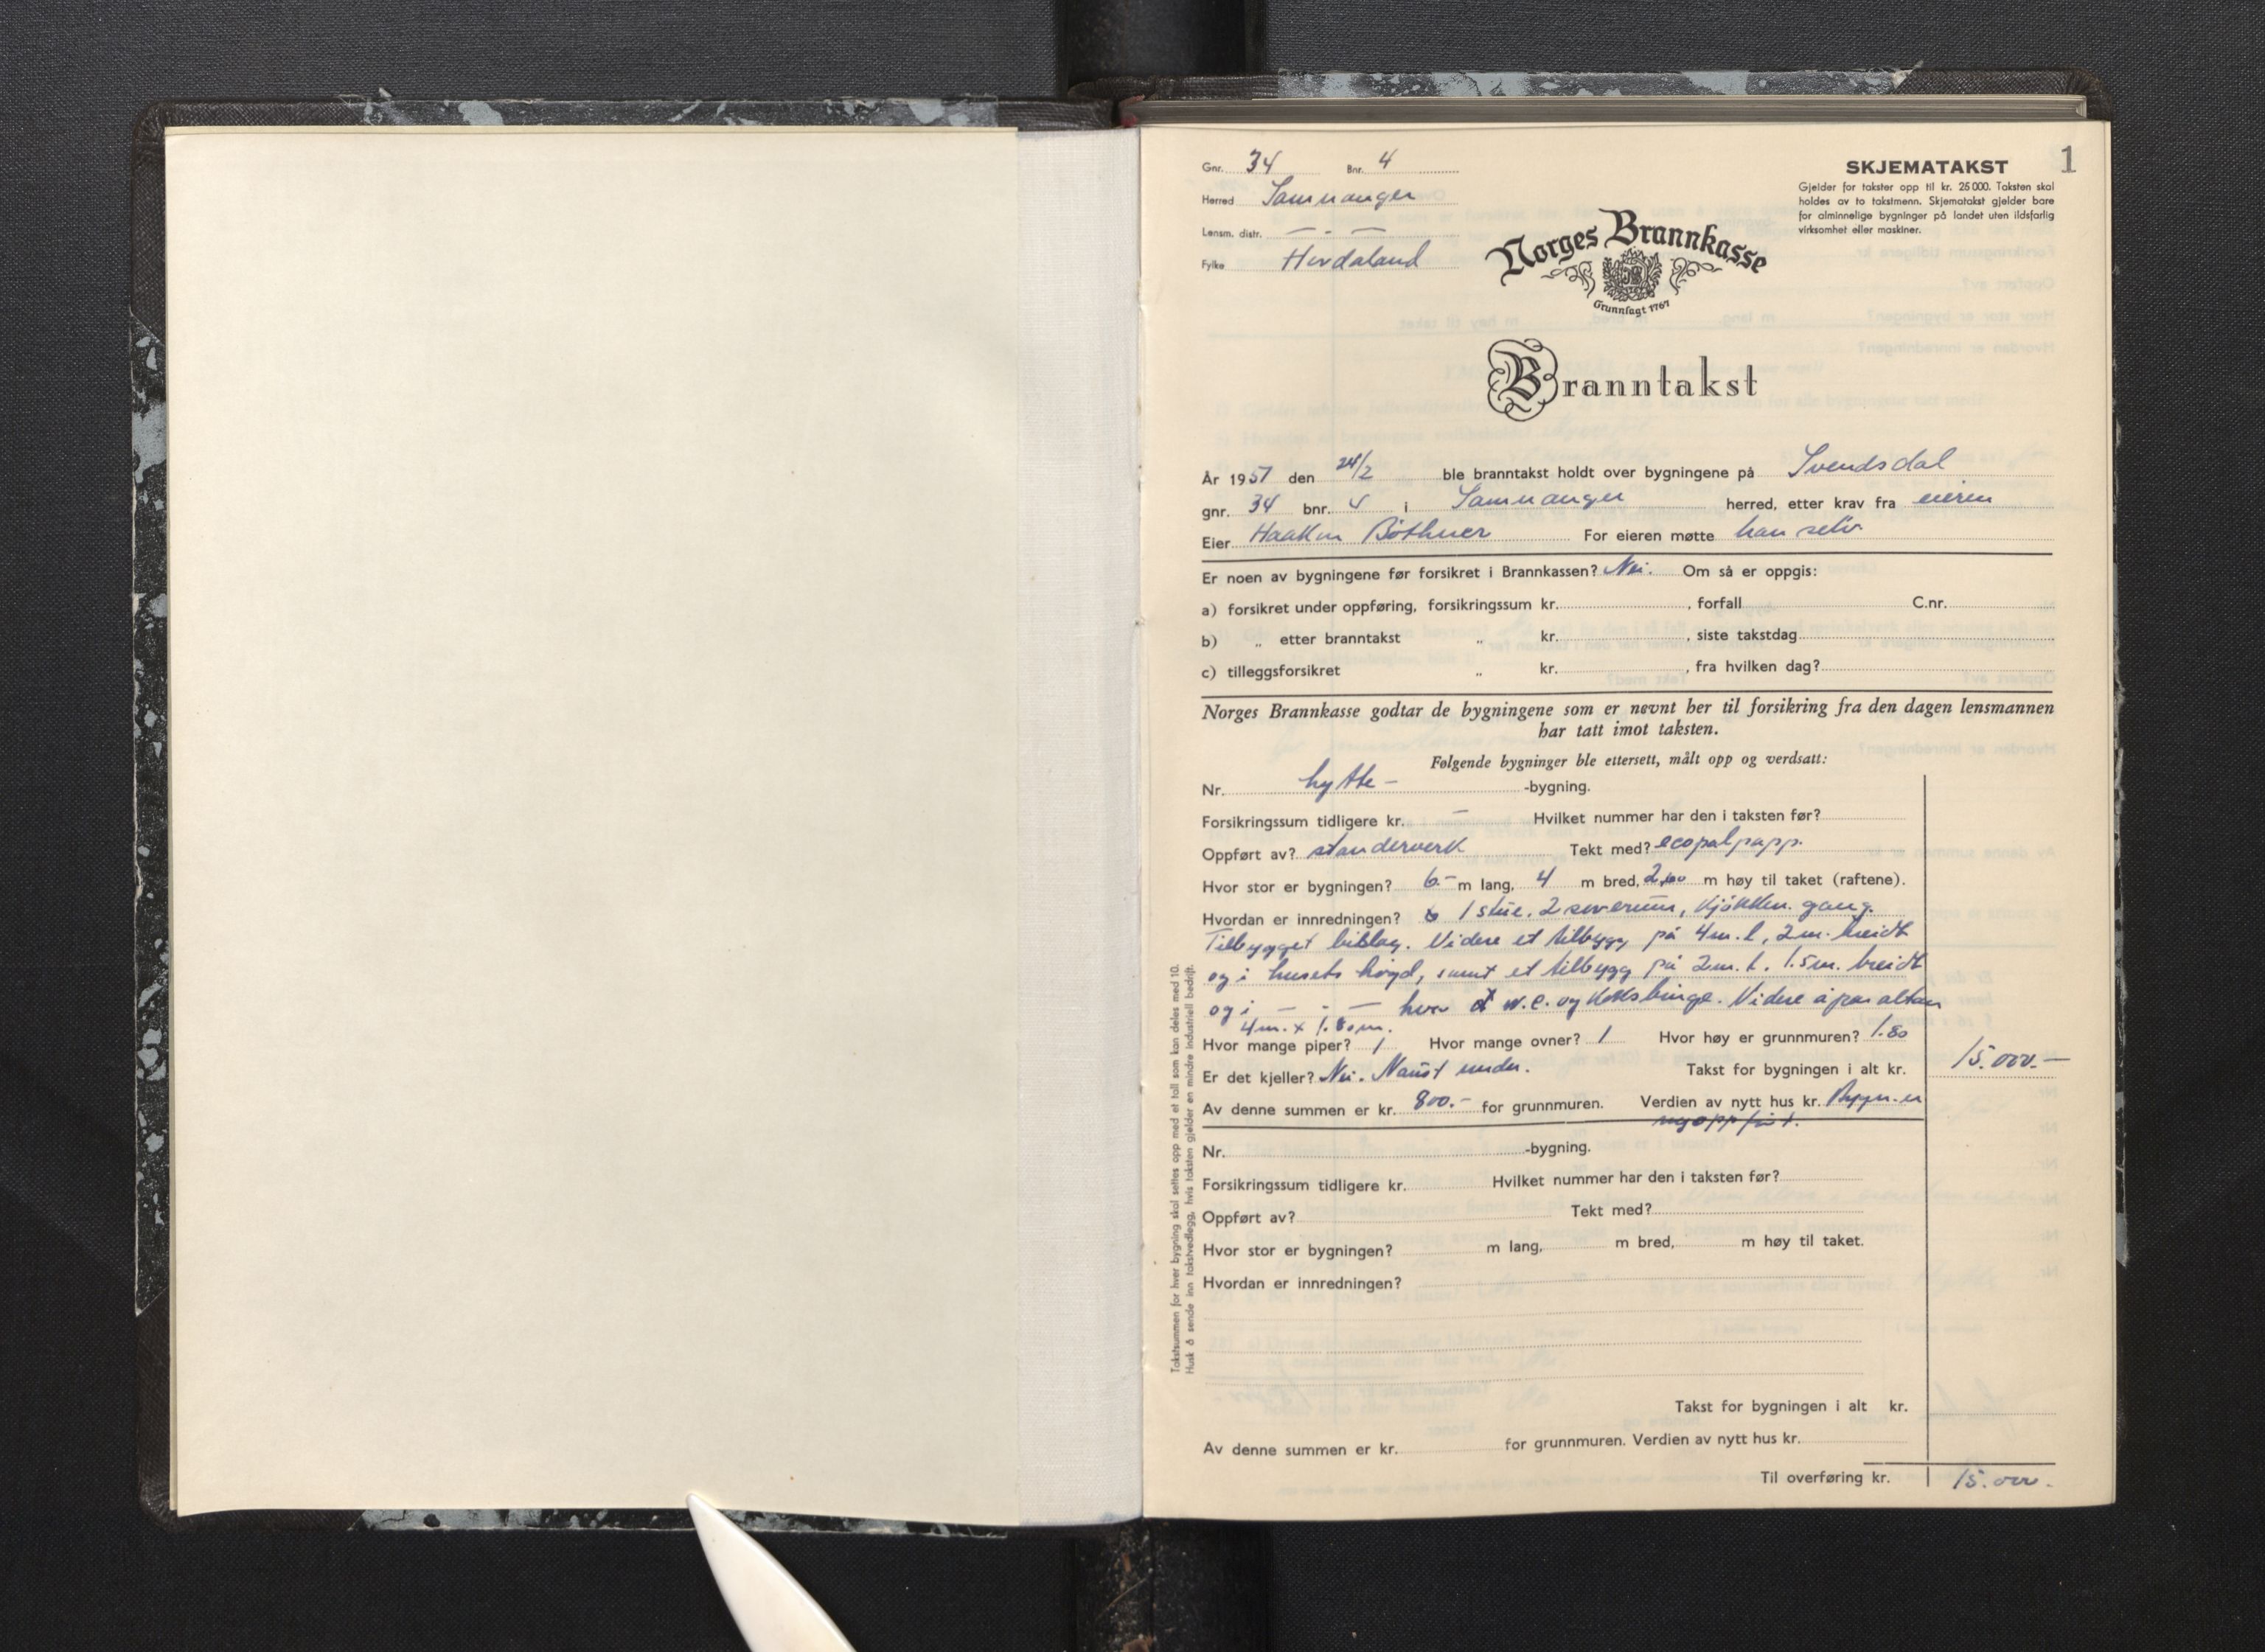 1
SKJEMATAKST
Gjelder for takster opp til kr. 25 000. Taksten skal
holdes av to takstmenn. Skjematakst gjelder bare
for alminnelige bygninger på landet uten ildsfarlig
virksomhet eller maskiner.
Gnr. 34 Bnr. 4
Herred Samnanger
Lensm. distr. — - —
Fylke Hordaland
Norges Brannkasse
Grunnlagt 1767
Branntakst
År 1951 den 24/2 ble branntakst holdt over bygningene på Svendsdal
gnr. 34 bnr. 4 i Samnanger herred, etter krav fra eieren
Eier Haakon Böthner For eieren møtte han selv
Er noen av bygningene før forsikret i Brannkassen? Nei. Om så er oppgis:
a) forsikret under oppføring, forsikringssum kr. , forfall C.nr.
b) „ etter branntakst „ kr. , siste takstdag
c) tilleggsforsikret „ kr. , fra hvilken dag?
Norges Brannkasse godtar de bygningene som er nevnt her til forsikring fra den dagen lensmannen
har tatt imot taksten.
Følgende bygninger ble ettersett, målt opp og verdsatt:
Nr. hytte- -bygning.
Forsikringssum tidligere kr. — Hvilket nummer har den i taksten før?
Oppført av? standerverk Tekt med? ecopalpapp.
Hvor stor er bygningen? 6.- m lang, 4 m bred, m høy til taket (raftene).
Hvordan er innredningen? 1 stue, 2 soverum, kjökken. gang.
Tilbygget bislag. Videre et tilbygg på 4m. l, 2m. breidt
og i husets høgd, samt et tilbygg på 2m. l. 1.5m. breidt
og i — - — hvor w.c. og koksbinge. Videre åpen altan
4m. x 1.80m.
Hvor mange piper? 1 Hvor mange ovner? 1 Hvor høy er grunnmuren? 1.80
Er det kjeller? Nei. Naust under. Takst for bygningen i alt kr. 15.000.—
Av denne summen er kr. 800.- for grunnmuren. Verdien av nytt hus kr. Bygn. er
nyoppført.
Nr. -bygning.
Forsikringssum tidligere kr. Hvilket nummer har den i taksten før?
Oppført av? Tekt med?
Hvor stor er bygningen? m lang, m bred, m høy til taket.
Hvordan er innredningen?
Takst for bygningen i alt kr.
Av denne summen er kr. for grunnmuren. Verdien av nytt hus kr.
Til overføring kr. 15.000.
Takstsummen for hver bygning skal settes opp med et tall som kan deles med 10.
Husk å sende inn takstvedlegg, hvis taksten gjelder en mindre industriell bedrift.